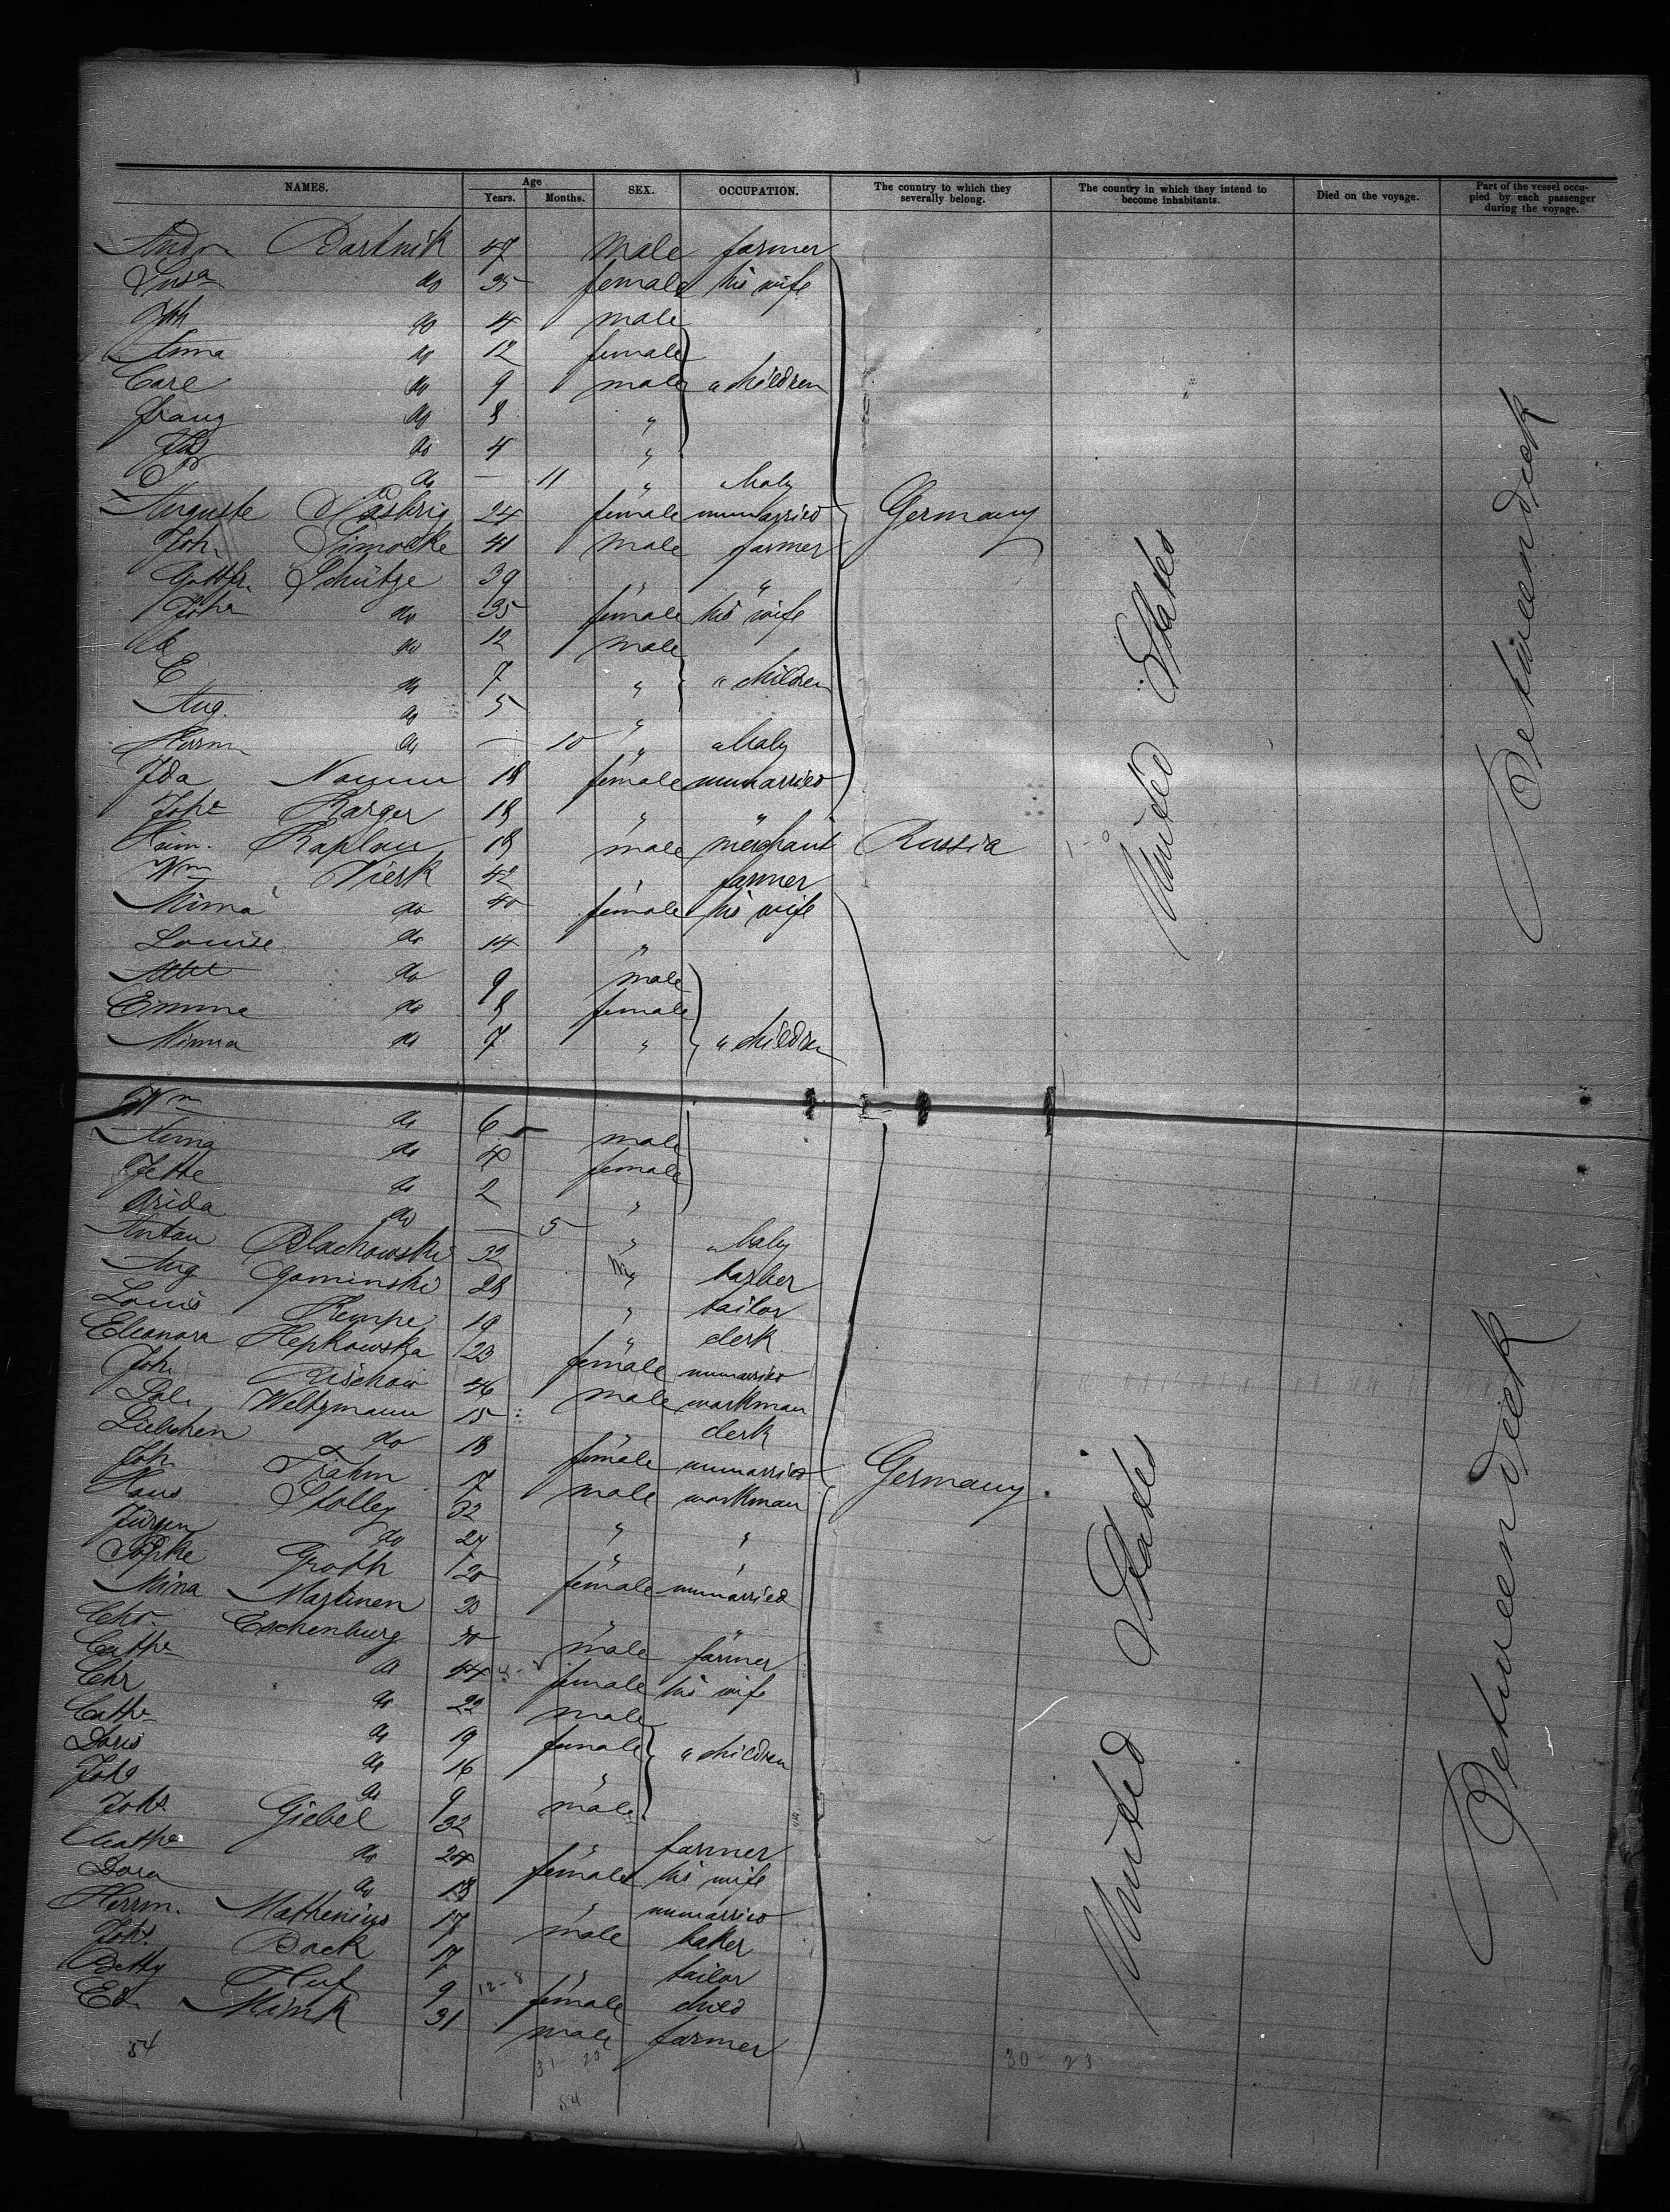 NAMES. Age Years. Months. SEX. OCCUPATION. The country to which they severally belong. The country in which they intend to become inhabitants. Died on the voyage. Part of the vessel occupied by each passenger during the voyage.
Bartnik 47 male farmer
Lusa do 35 female his wife
Joh do male
Anna do 12 female
Carl do 9 male " children
Franz do 8 "
do 4 "
do — 11 " baby
Auguste 24 female unmarried Germany
Joh. Simoelke 41 male farmer
Gottfr. Schütze 39 " "
Johe do 35 female his wife
do 12 male
E do 7 " " children
Aug. do 5 "
Herm do — 10 " " baby
Ida Naumu 18 female unmarried
Johe Barger 18 " "
Kaplan 18 male merchant Russia
Wm Viesk 42 " farmer
Minna do 40 female his wife
Louise do 14 "
do 9 male
Emma do 8 female
Minna do 7 " " children
United States
Betweendeck
Wm do 6 male
Anna do 4 female
Jette do 2 "
Frida do — 5 " " baby
Anton Blachowski 32 barber
Aug Gominski 28 " tailor
Louis Kempe 19 " clerk
Eleonora Hepkowska 23 female unmarried
Joh. Rischow 46 male workman
Sal. Weltzmann 15 clerk
Liebchen do 18 female unmarried
Joh. Frahm 17 male workman Germany.
Hans Stolley 32 " "
Jürgen do 24 "
Sopke Groth 20 female unmarried
Mina Martinen 20 " "
Chr. Eschenburg 50 male farmer
Cathe do 44 female his wife
Chr do 22 male
Cathe do 19 female " children
Doris do 16 "
Joh do 9 male
Johs Giebel 32 " farmer
Cathe do 24 female his wife
Dora do 18 " unmarried
Herrm. Mathenius 17 male baker
Johs. Back 17 " tailor
Betty 9 12-8 female child
Ed. Mink 31 male farmer
United States
Betweendeck
54 31-23 30-23
54